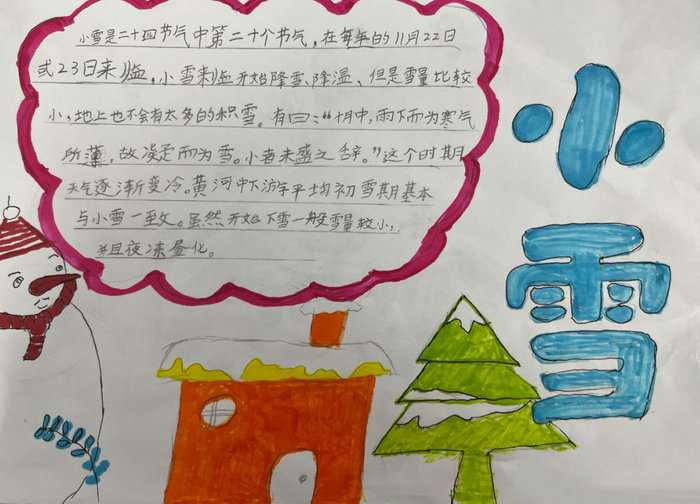 小雪是二十四节气中第二十个节气，在每年的11月22日
或23日来临，小雪来临开始降雪、降温、但是雪量比较
小，地上也不会有太多的积雪。有曰：“十月中，雨下而为寒气
所薄，故凝而为雪。小者未盛之辞。”这个时期
天气逐渐变冷。黄河中下游平均初雪期基本
与小雪一致。虽然开始下雪一般雪量较小，
并且夜冻昼化。
小雪